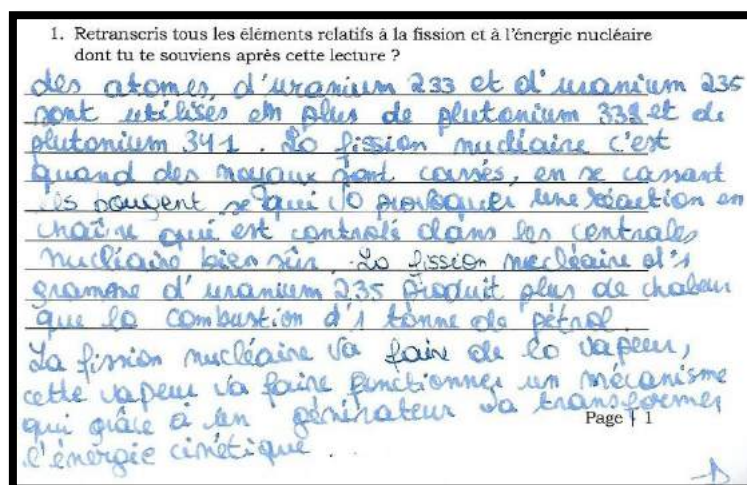 1. Retranscris tous les éléments relatifs à la fission et à l'énergie nucléaire
dont tu te souviens après cette lecture ?
des atomes, d'uranium 233 et d'uranium 235
sont utilisés en plus de plutonium 338 et de
plutonium 341. La fission nucléaire c'est
quand des noyaux sont cassés, en se cassant
ils bougent se qui va provoquer une réaction en
chaîne qui est controlé dans les centrales
nucléaire bien sûr. La fission nucléaire d'1
gramme d'uranium 235 produit plus de chaleur
que la combustion d'1 tonne de pétrol.
La fission nucléaire va faire de la vapeur,
cette vapeur va faire functionner un mécanisme
qui grâce à un générateur va transformer
Page | 1
l'énergie cinétique...